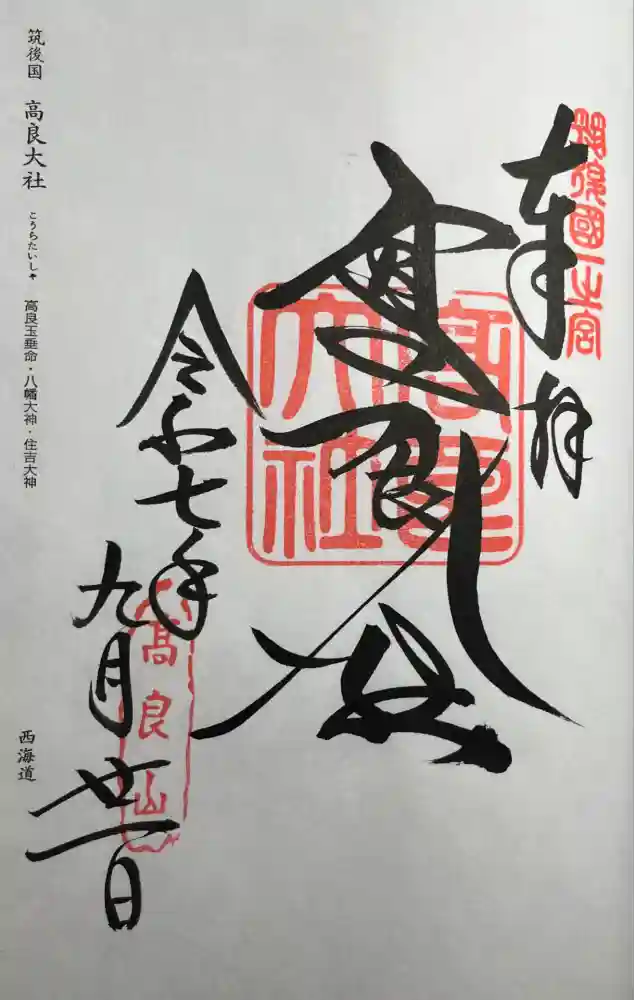 筑後國一之宮
奉拝
高良大社
高良大社
令和七年
九月廿一日
高良山
筑後国 高良大社 こうらたいしゃ 高良玉垂命・八幡大神・住吉大神
西海道